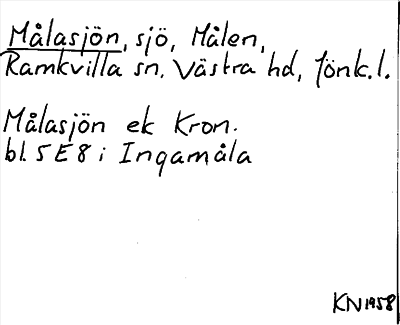 Målasjön, sjö, Målen,
Ramkvilla sn, Västra hd, Jönk.l.
Målasjön ek Kron.
bl. 5E8 i Ingamåla
KN 1958